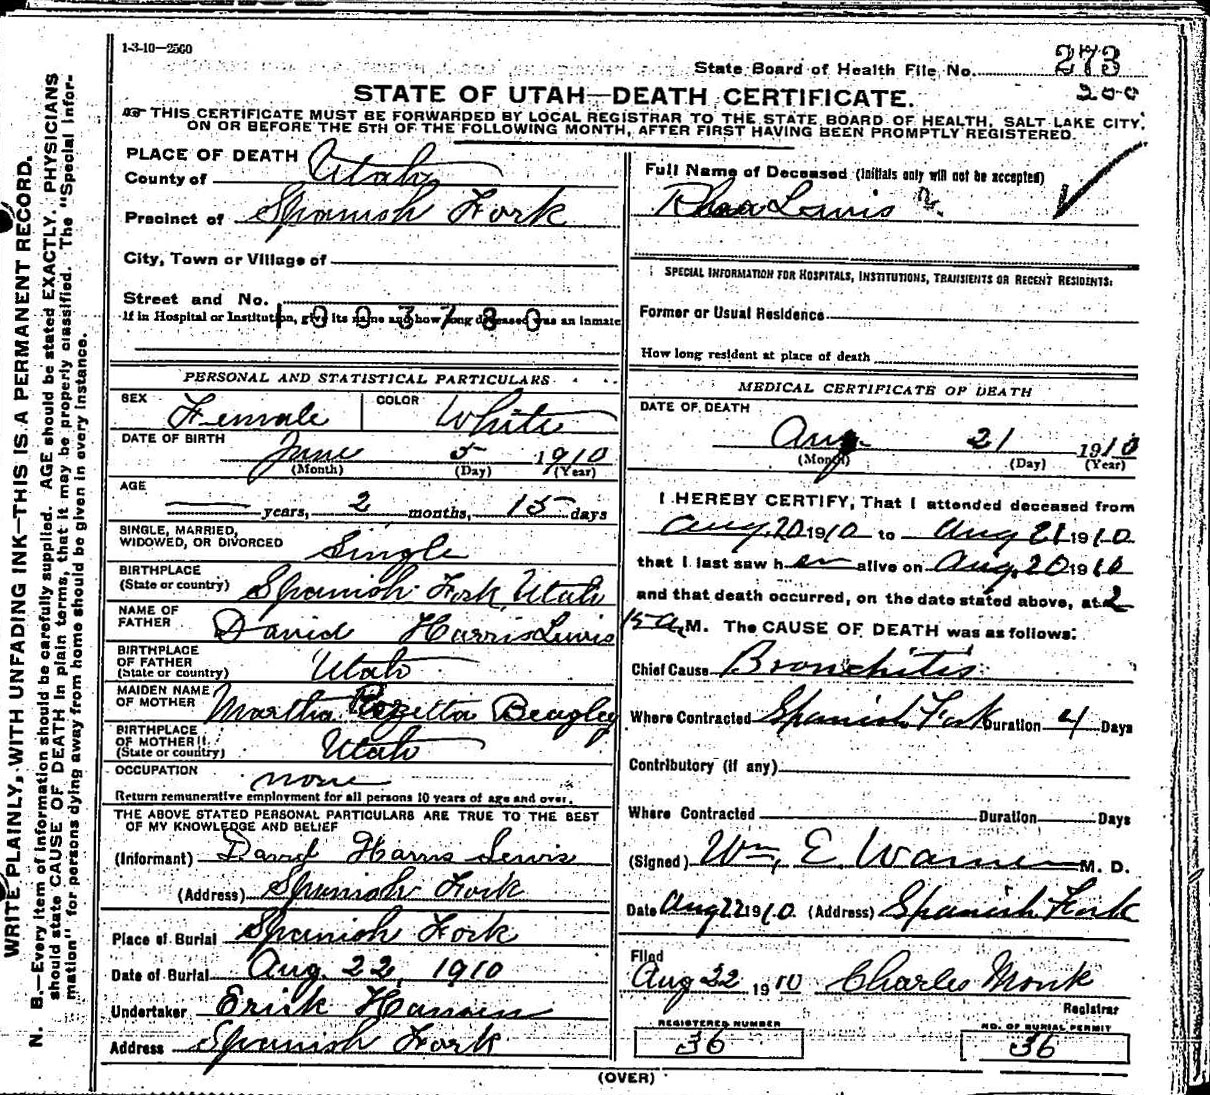 1-3-10—2560
State Board of Health File No. 273
200
STATE OF UTAH—DEATH CERTIFICATE.
THIS CERTIFICATE MUST BE FORWARDED BY LOCAL REGISTRAR TO THE STATE BOARD OF HEALTH, SALT LAKE CITY,
ON OR BEFORE THE 5TH OF THE FOLLOWING MONTH, AFTER FIRST HAVING BEEN PROMPTLY REGISTERED.
PLACE OF DEATH
County of Utah
Precinct of Spanish Fork
City, Town or Village of
Street and No.
If in Hospital or Institution, give its name and how long deceased was an inmate
1003780
PERSONAL AND STATISTICAL PARTICULARS
SEX Female COLOR White
DATE OF BIRTH June 5 1910
(Month) (Day) (Year)
AGE
— years, 2 months, 15 days
SINGLE, MARRIED,
WIDOWED, OR DIVORCED Single
BIRTHPLACE
(State or country) Spanish Fork, Utah
NAME OF
FATHER David Harris Lewis
BIRTHPLACE
OF FATHER
(State or country) Utah
MAIDEN NAME
OF MOTHER Martha Rozetta Beagley
BIRTHPLACE
OF MOTHER
(State or country) Utah
OCCUPATION none
Return remunerative employment for all persons 10 years of age and over.
THE ABOVE STATED PERSONAL PARTICULARS ARE TRUE TO THE BEST
OF MY KNOWLEDGE AND BELIEF
(Informant) David Harris Lewis
(Address) Spanish Fork
Place of Burial Spanish Fork
Date of Burial Aug. 22, 1910
Undertaker Erick Hansen
Address Spanish Fork
Full Name of Deceased (Initials only will not be accepted)
Rhea Lewis
SPECIAL INFORMATION FOR HOSPITALS, INSTITUTIONS, TRANSIENTS OR RECENT RESIDENTS:
Former or Usual Residence
How long resident at place of death
MEDICAL CERTIFICATE OF DEATH
DATE OF DEATH
Aug. 21 1910
(Month) (Day) (Year)
I HEREBY CERTIFY, That I attended deceased from
Aug. 20 1910 to Aug 21 1910
that I last saw h er alive on Aug. 20 1910
and that death occurred, on the date stated above, at 2
15 a M. The CAUSE OF DEATH was as follows:
Chief Cause Bronchitis
Where Contracted Spanish Fork Duration 4 Days
Contributory (if any)
Where Contracted Duration Days
(Signed) Wm. E Warner M. D.
Date Aug 22 1910 (Address) Spanish Fork
Filed
Aug 22 1910 Charles Monk
Registrar
REGISTERED NUMBER
36
NO. OF BURIAL PERMIT
36
(OVER)
WRITE PLAINLY, WITH UNFADING INK—THIS IS A PERMANENT RECORD.
N. B.—Every item of information should be carefully supplied. AGE should be stated EXACTLY. PHYSICIANS
should state CAUSE OF DEATH in plain terms, that it may be properly classified. The "Special Infor-
mation" for persons dying away from home should be given in every instance.